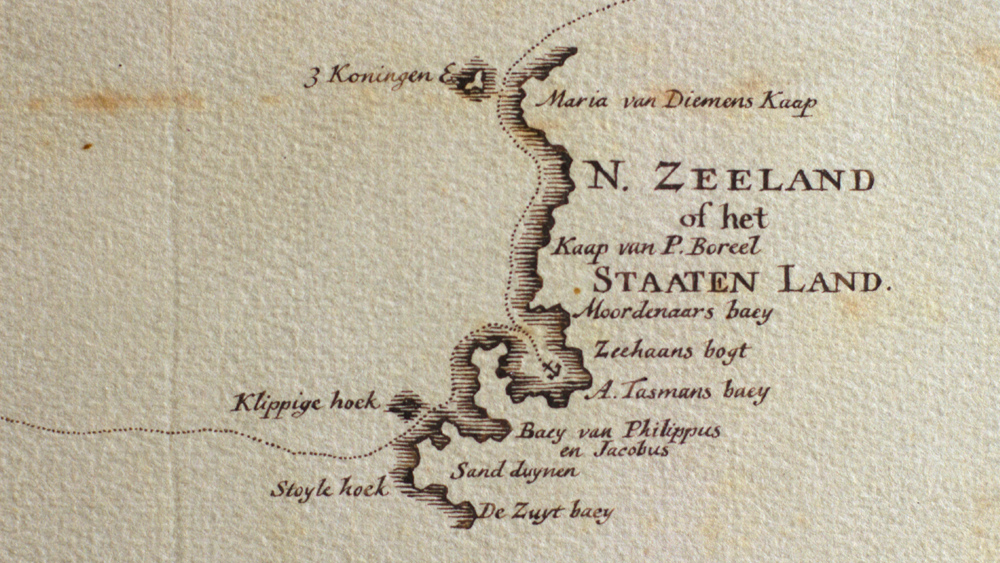 3 Koningen E
Maria van Diemens Kaap
N. ZEELAND
of het
Kaap van P. Boreel
STAATEN LAND.
Moordenaars baey
Zeehaans bogt
A. Tasmans baey
Klippige hoek
Baey van Philippus
en Jacobus
Sand duynen
Stoyle hoek
De Zuyt baey